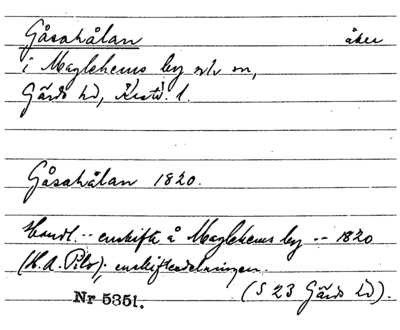 Gåsahålan åker
i Maglehems by och sn,
Gärds hd, Krist. l.
Gåsahålan 1820.
Handl. -- enskifte å Maglehems by -- 1820
(H.A. Pilo); enskiftesdelningen.
Nr 5351. (S 23 Gärds hd).